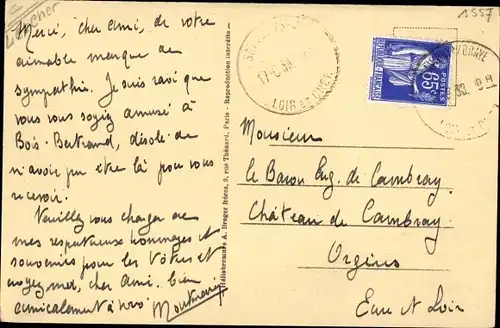 1557
Loir et Cher
Merci, cher ami, de votre
aimable marque de
sympathie. Je suis ravi que
vous vous soyiez amusé à
Bois-Bertrand, désolé de
n'avoir pu être là pour vous
recevoir.
Veuillez vous charger de
mes respectueux hommages et
souvenirs pour les vôtres et
croyez moi, cher ami, bien
amicalement à vous
Héliogravure A. Breger frères, 9, rue Thénard, Paris - Reproduction interdite
LOIR ET CHER
65c
POSTES
REPUBLIQUE FRANÇAISE
Monsieur
le Baron Eug. de Cambray
Château de Cambray
Eure et Loir